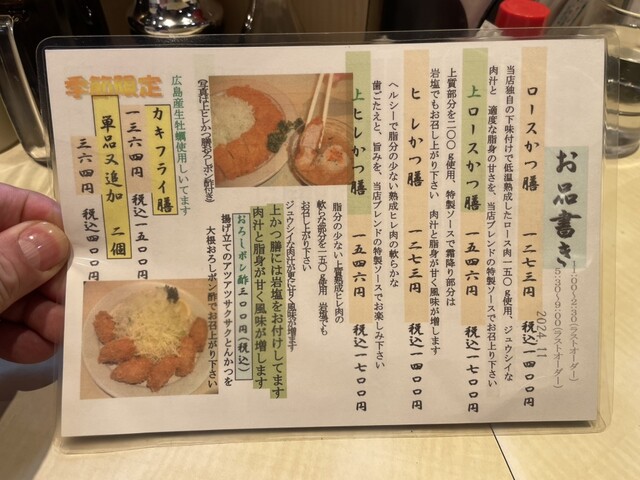 お品書き
2024.11
1:00-2:30(ラストオーダー)
5:30-9:00(ラストオーダー)
ロースかつ膳 一二七三円 税込一四〇〇円
当店独自の下味付けで低温熟成したロース肉一五〇g使用、ジュウシイな
肉汁と 適度な脂身の甘さを、当店ブレンドの特製ソースでお召上り下さい
上ロースかつ膳 一五四六円 税込一七〇〇円
上質部分を二〇〇g使用、特製ソースで霜降り部分は
岩塩でもお召し上がり下さい 肉汁と脂身が甘く風味が増します
ヒレかつ膳 一二七三円 税込一四〇〇円
ヘルシーで脂分の少ない熟成ヒレ肉の軟らかな
歯ごたえと、旨みを、当店ブレンドの特製ソースでお楽しみ下さい
上ヒレかつ膳 一五四六円 税込一七〇〇円
脂分の少ない上質熟成ヒレ肉の
軟らな部分を二五〇g使用、岩塩でも
お召し上がり下さい
ジュウシイな肉汁が更に甘く風味が増ます
上かつ膳には岩塩をお付けしてます
肉汁と脂身が甘く風味が増します
(写真は上ヒレかつ膳おろしポン酢付き)
おろしポン酢三〇〇円(税込)
揚げ立てのアツアツサクサクとんかつを
大根おろしポン酢でお召上がり下さい
季節限定
広島産生牡蠣使用しいてます
カキフライ膳
一三六四円 税込一五〇〇円
単品又追加 二個
三六四円 税込四〇〇円